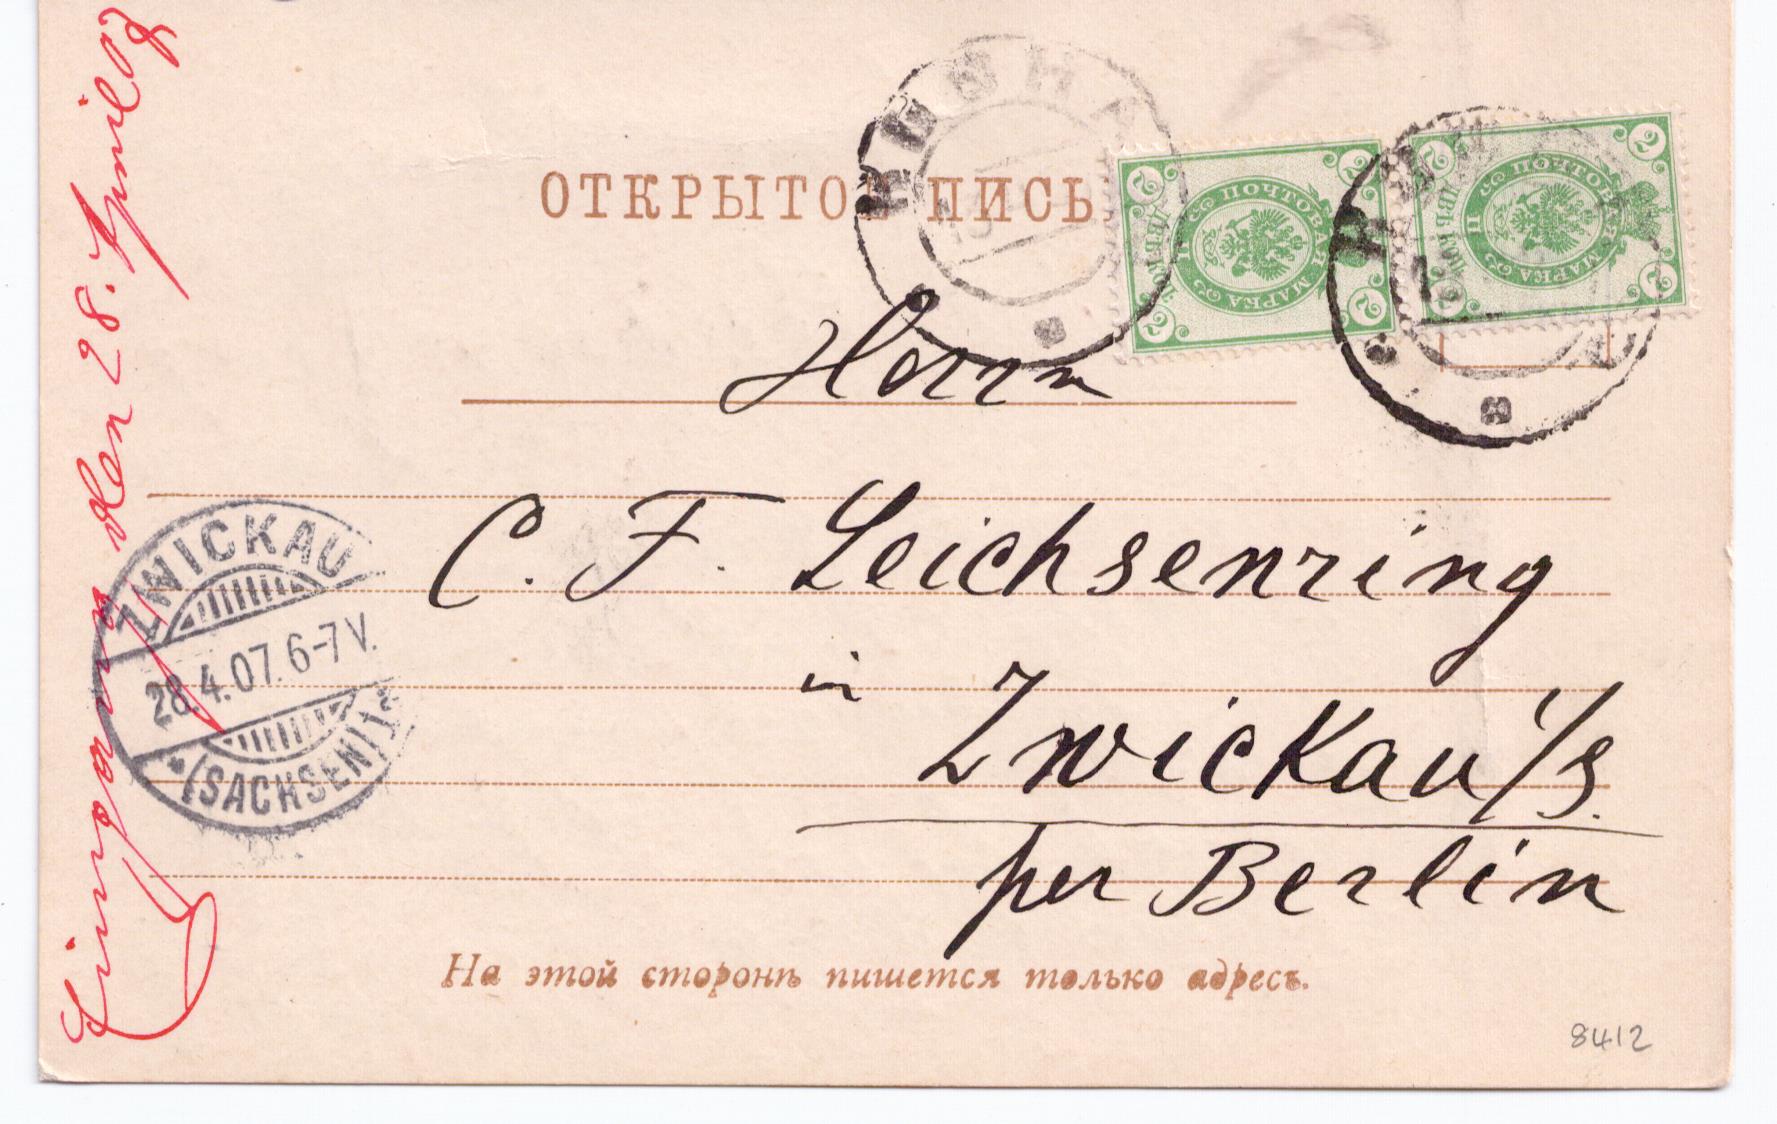 Eingang den 28. April 07
ОТКРЫТОЕ ПИСЬ
2 2 2 2
ПОЧТОВАЯ МАРКА
2 2 2 2
ПОЧТОВАЯ МАРКА
Herrn
C. F. Leichsenring
in
Zwickau i/S.
per Berlin
ZWICKAU
28.4.07. 6-7 V.
(SACHSEN) 1
На этой сторонѣ пишется только адресъ.
8412